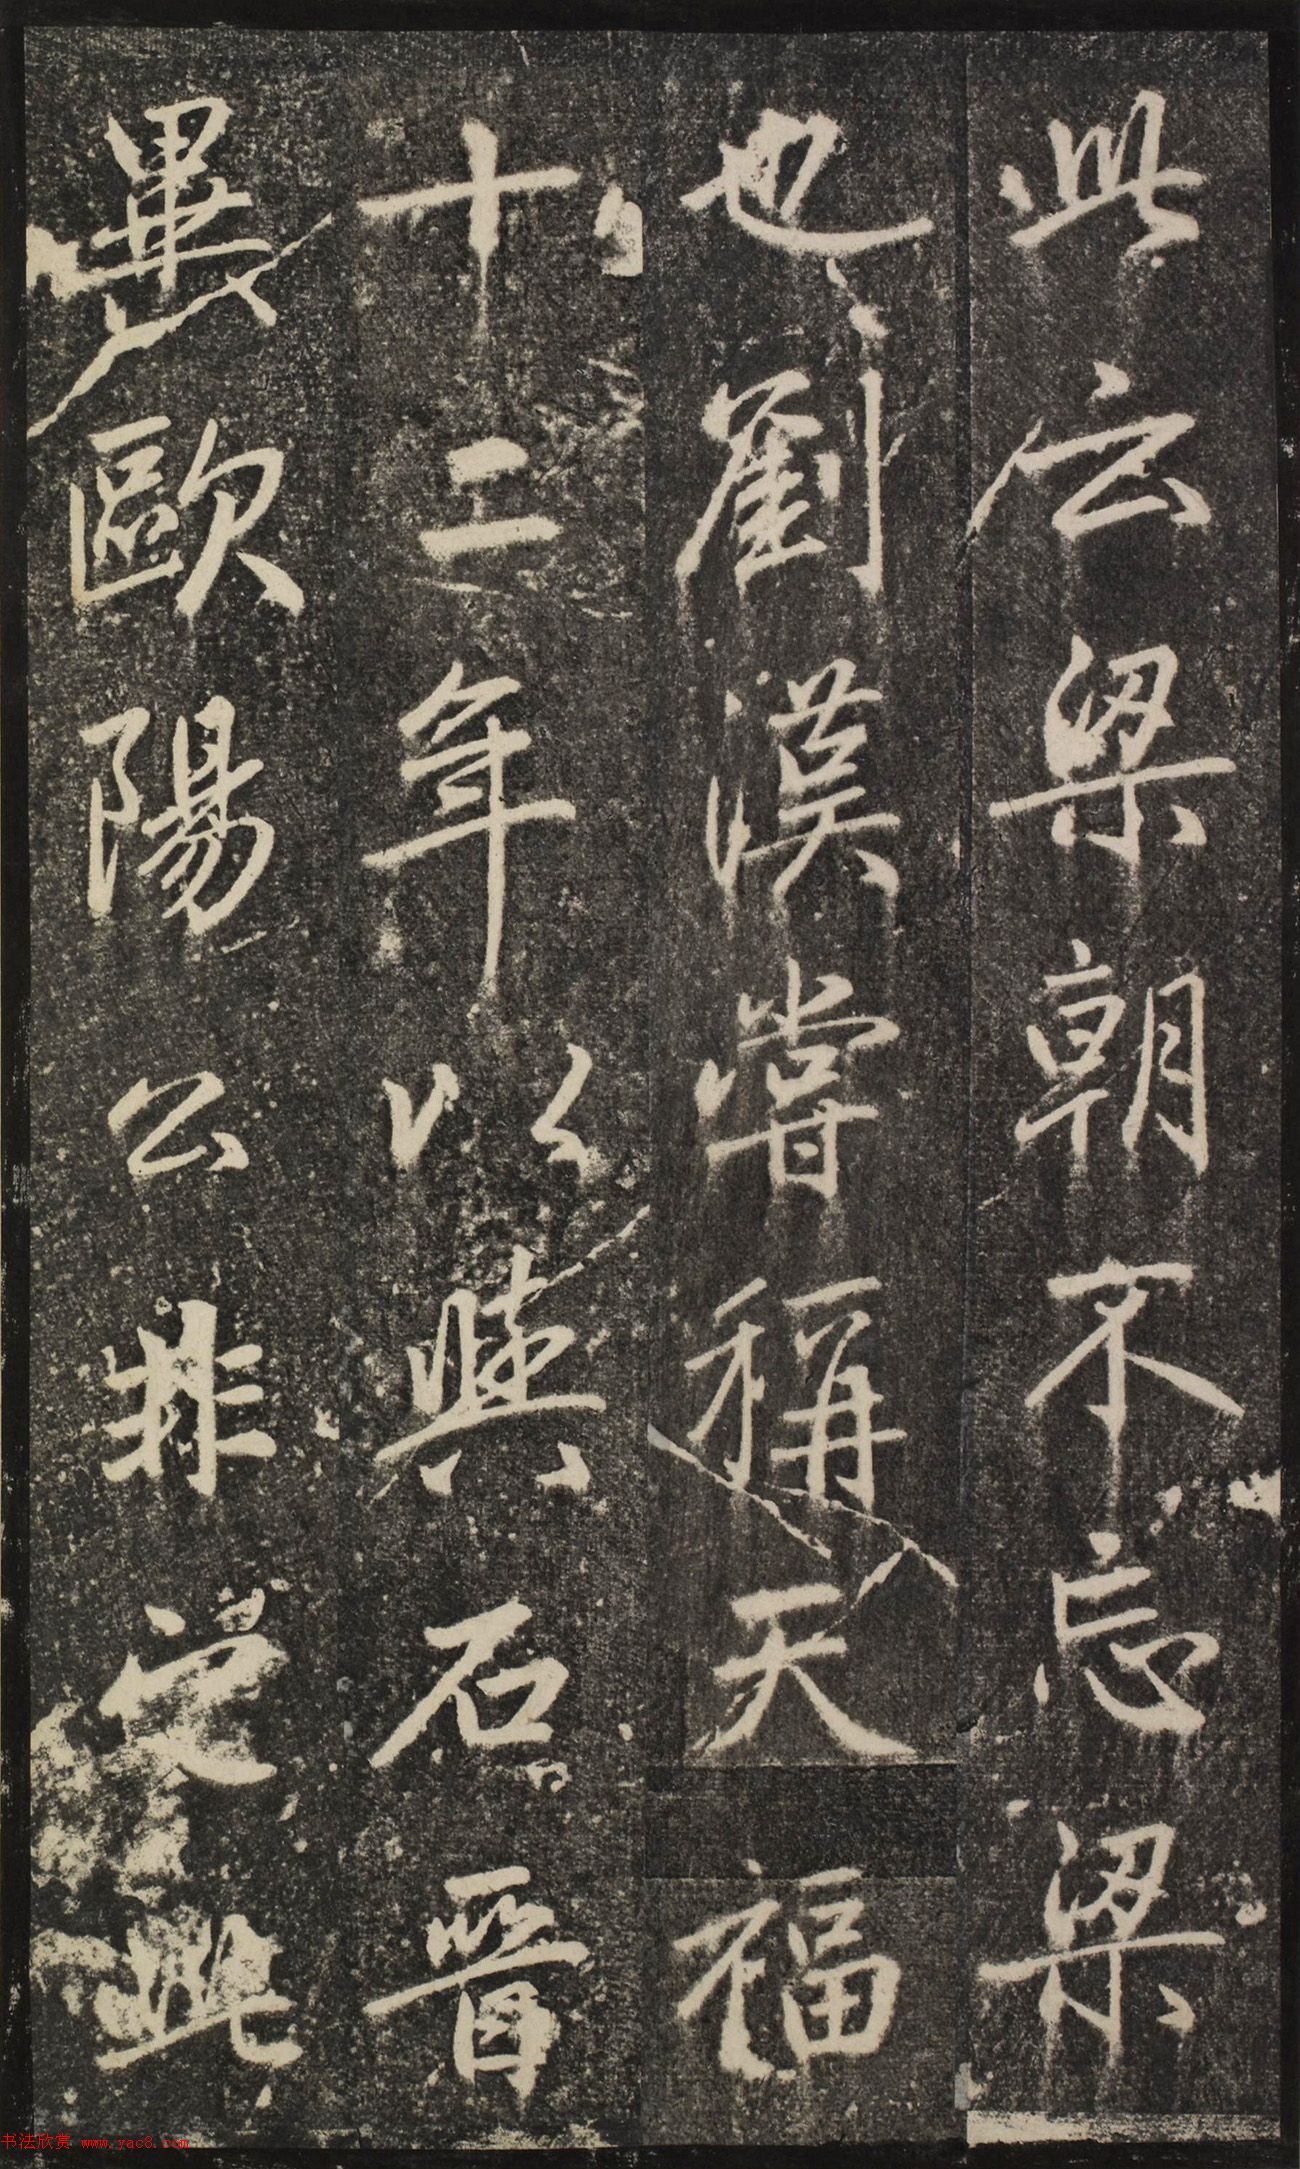 此云梁朝不忘梁
也劉漢嘗稱天福
十二年以與石晉
異歐陽公非之此
书法欣赏 www.yac8.com